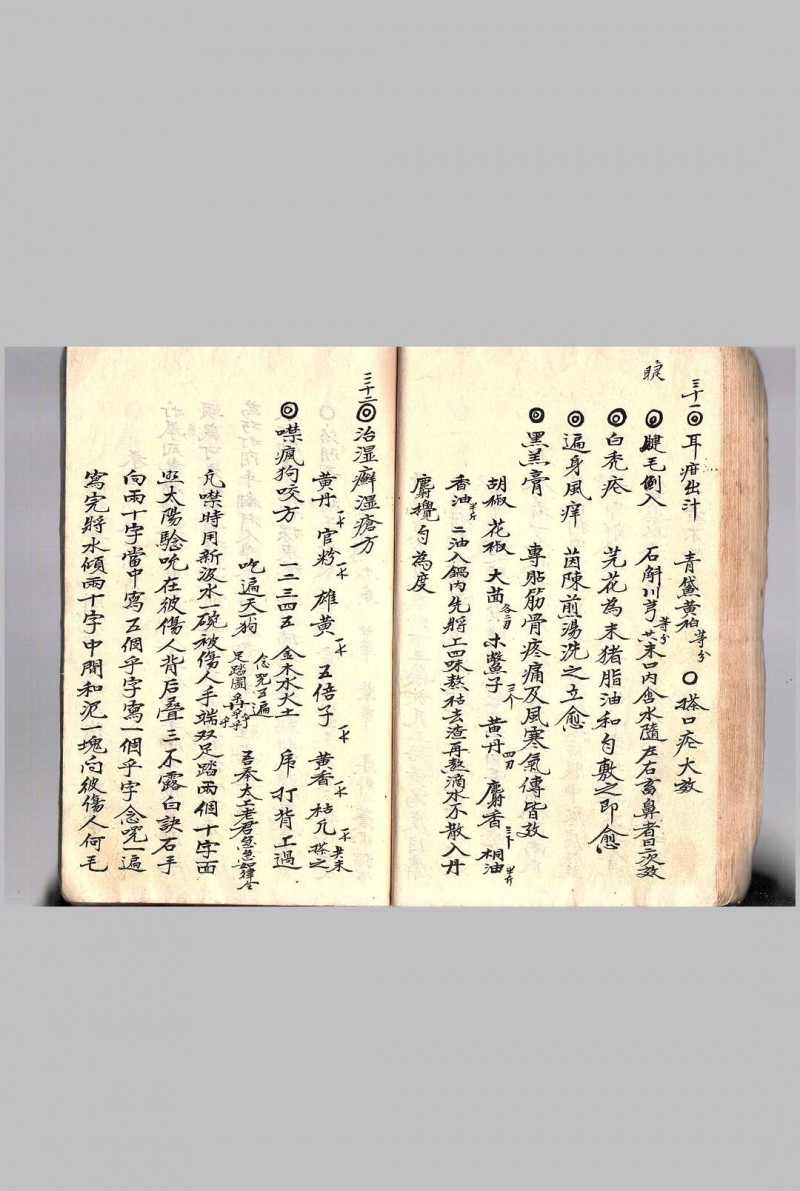 三十一◎耳疳出汁 青黛黄柏等分 ○搽口疮大效
睫毛倒入 石斛川芎等分共末口內含水隨左右畜鼻者日次效
◎白禿疮 芫花為末猪脂油和匀敷之即愈
◎遍身風痒 茵陳煎湯洗之立愈
◎黑羔膏 專貼筋骨疼痛及風寒氣傳皆效
胡椒 花椒 大茴各二刃 木鱉子三个 黄丹四刃 麝香三卜 桐油半斤
香油半斤 二油入鍋内先將上四味熬枯去渣再熬滴水不散入丹
麝攪匀為度
三十二◎治湿癬湿瘡方
黄丹一个 官粉一个 雄黄一个 五倍子一个 黄香一个 枯凡一个共末搽之
◎噤瘋狗咬方 一二三四五 金木水火土 打背上過
吃遍天下狗 念咒五遍 吾奉太上老君急急如律令
凡噤時用新汲水一碗被傷人手端双足踏兩個十字面
照太陽騐咒在彼傷人背后疊三不露白訣右手
向兩十字當中寫五個乎字寫一個乎字念咒一遍
寫完將水傾兩十字中間和泥一塊向彼傷人何毛